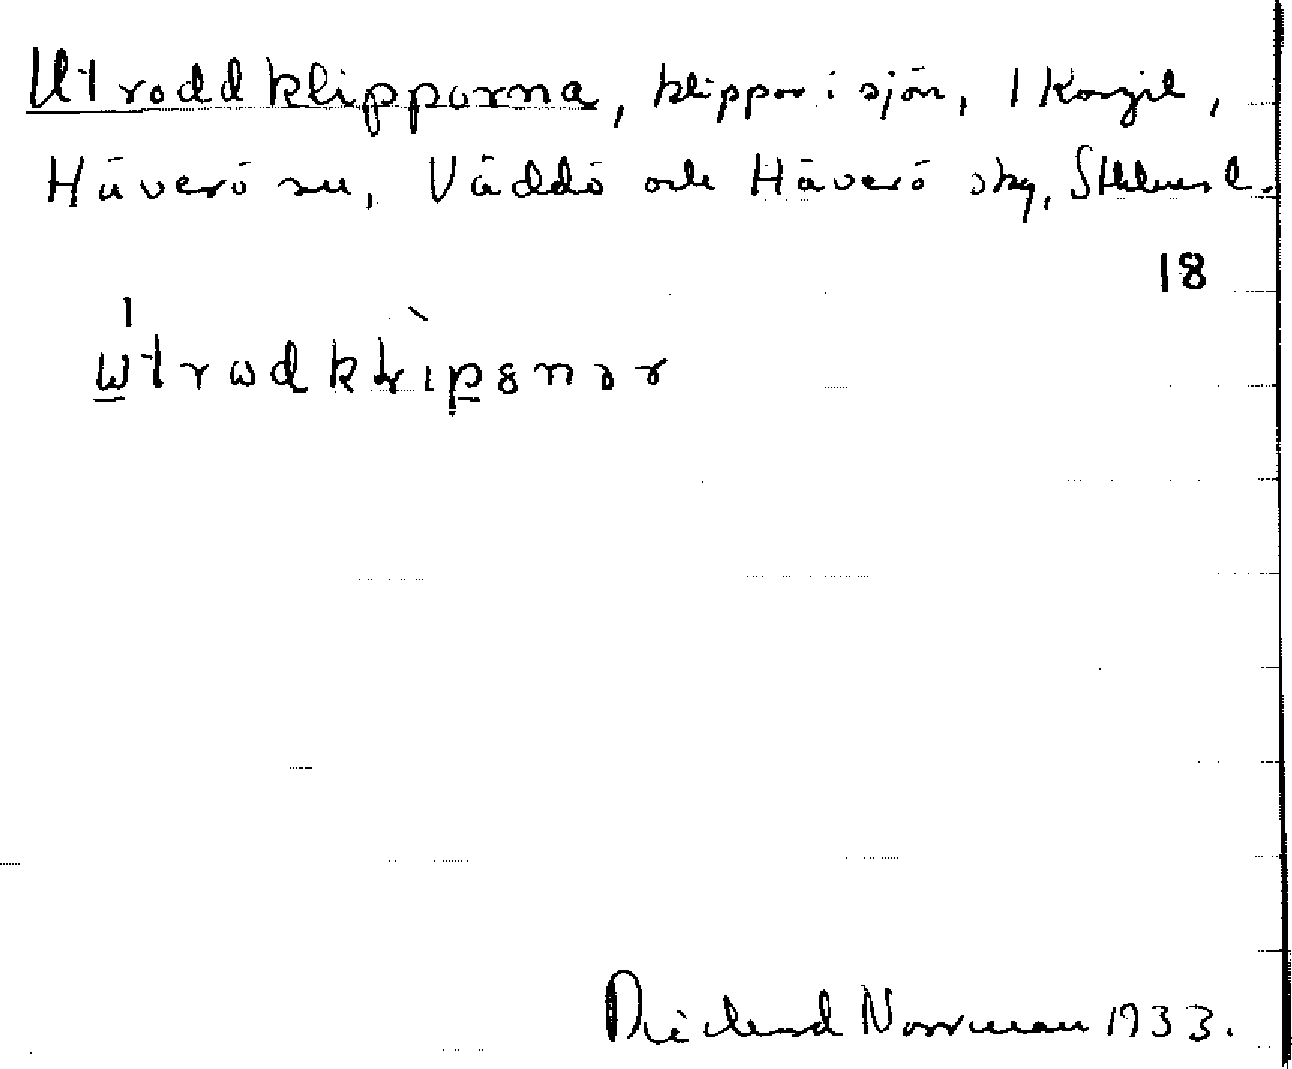 Utroddklipporna, klippor i sjön, 1 Korgil,
Häverö sn, Väddö och Häverö skg, Sthlms l.
18
Richard Norrman 1933.